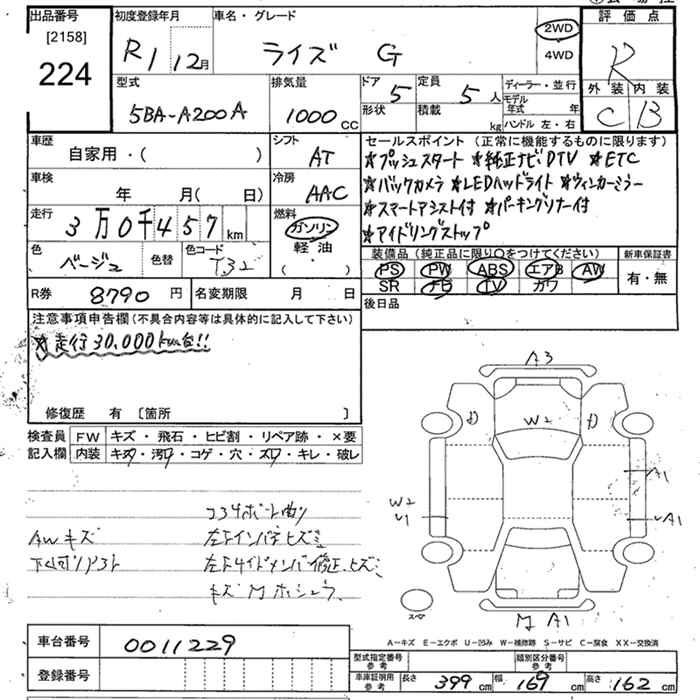 出品番号
[2158]
224
初度登録年月
R1 12月
車名・グレード
ライズ G
2WD
4WD
評価点
R
外装 内装
C B
型式
5BA-A200A
排気量
1000 CC
ドア 5
形状
定員 5 人
積載 kg
ディーラー・並行
モデル年式 年
ハンドル 左・右
車歴
自家用・( )
シフト
AT
車検
年 月( 日)
冷房
AAC
走行
3万0千457 km
燃料
ガソリン
軽油
( )
色
ベージュ
色替
色コード
T32
R券 8790 円
名変期限 月 日
セールスポイント(正常に機能するものに限ります)
★プッシュスタート ★純正ナビDTV ★ETC
★バックカメラ ★LEDヘッドライト ★ウィンカーミラー
★スマートアシスト付 ★パーキングソナー付
★アイドリングストップ
装備品(純正品に限り○をつけてください)
新車保証書
PS PW ABS エアB AW
SR ナビ TV カワ
有・無
後日品
注意事項申告欄(不具合内容等は具体的に記入して下さい)
★走行30,000km台!!
修復歴 有〔箇所 〕
検査員記入欄
FW キズ・飛石・ヒビ割・リペア跡・×要
内装 キズ・汚れ・コゲ・穴・スレ・キレ・破れ
コアサポート曲り
AWキズ
左フインパネヒズミ
下回りリアスト
左フサイドメンバ修正、ヒズミ
キズ M ホシュウ
A3
D
W2
D
A1
W2
U1
A1
スペア
M A1
A-キズ E-エクボ U-凹み W-補修跡 S-サビ C-腐食 XX-交換済
車台番号
0011229
登録番号
型式指定番号 参考
類別区分番号 参考
車庫証明用 参考
長さ 399 cm
幅 169 cm
高さ 162 cm